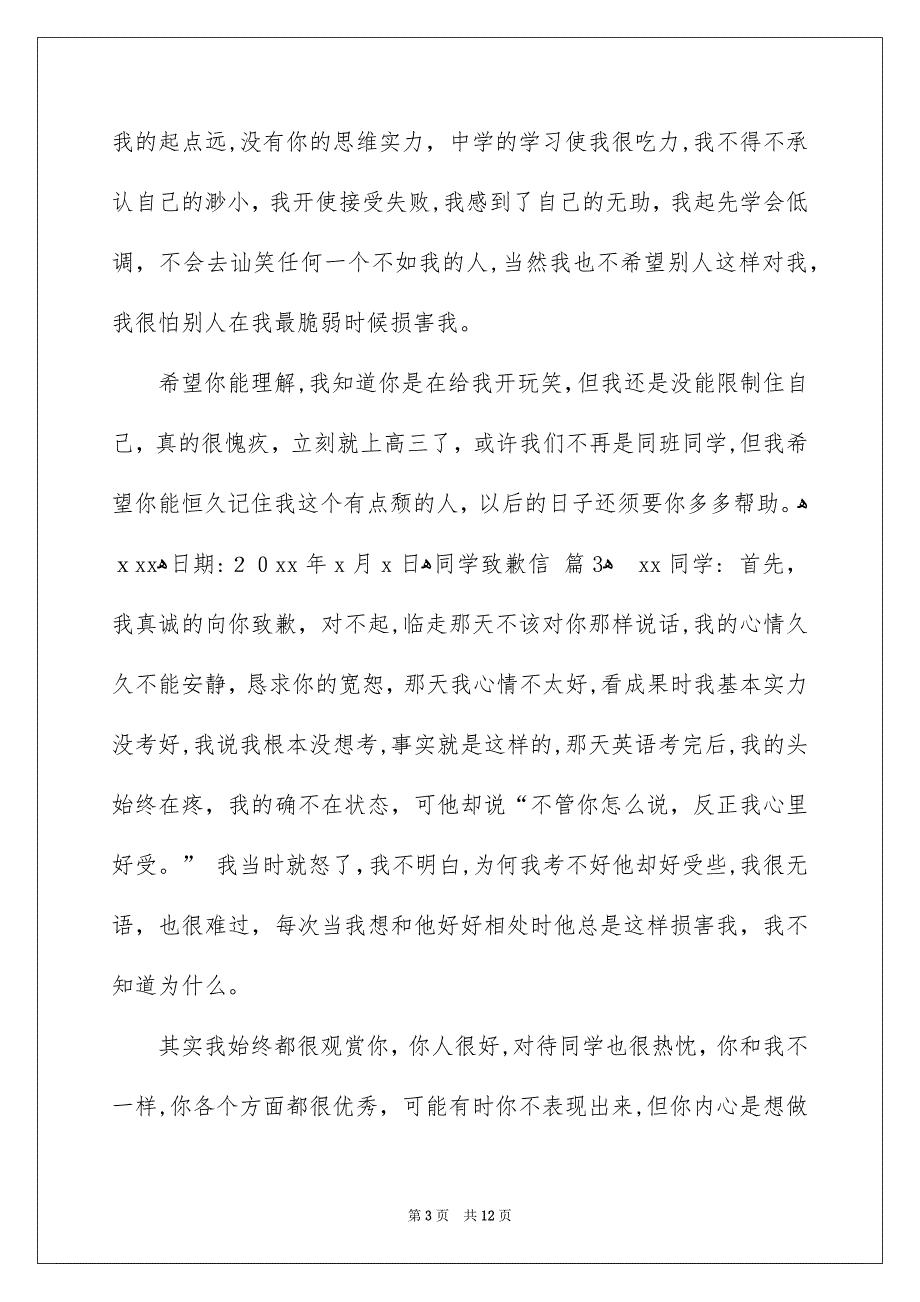 我的起点远,没有你的思维实力，中学的学习使我很吃力,我不得不承
认自己的渺小，我开使接受失败,我感到了自己的无助，我起先学会低
调，不会去讪笑任何一个不如我的人,当然我也不希望别人这样对我，
我很怕别人在我最脆弱时候损害我。
希望你能理解,我知道你是在给我开玩笑,但我还是没能限制住自
己，真的很愧疚，立刻就上高三了，或许我们不再是同班同学,但我希
望你能恒久记住我这个有点颓的人，以后的日子还须要你多多帮助。ﻫ
ｘxxﻫ日期:２０xx年x月x日ﻫ同学致歉信 篇3ﻫ　xx同学: 首先，
我真诚的向你致歉，对不起,临走那天不该对你那样说话,我的心情久
久不能安静，恳求你的宽恕，那天我心情不太好,看成果时我基本实力
没考好,我说我根本没想考,事实就是这样的,那天英语考完后,我的头
始终在疼，我的确不在状态，可他却说“不管你怎么说，反正我心里
好受。” 我当时就怒了,我不明白,为何我考不好他却好受些,我很无
语，也很难过，每次当我想和他好好相处时他总是这样损害我，我不
知道为什么。
其实我始终都很观赏你，你人很好,对待同学也很热忱，你和我不
一样,你各个方面都很优秀，可能有时你不表现出来,但你内心是想做
第 3 页 共 12 页